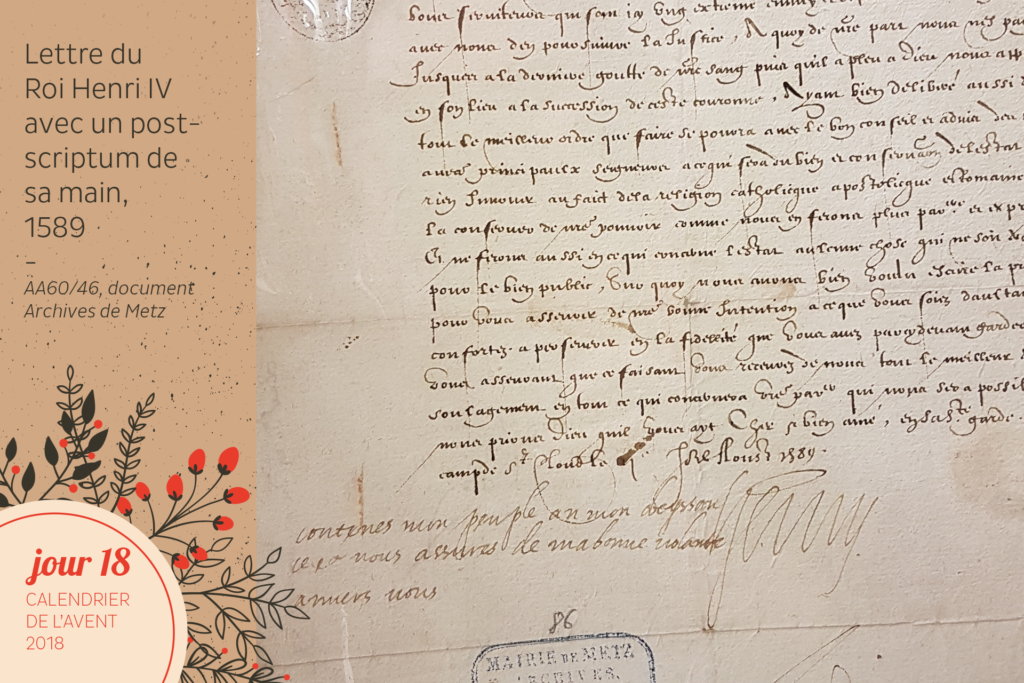 Lettre du
Roi Henri IV
avec un post-
scriptum de
sa main,
1589
-
AA60/46, document
Archives de Metz
jour 18
CALENDRIER
DE L'AVENT
2018
avec nous den poursuivre la Justice, A quoy de nre part nous
Jusques a la derniere goutte de nre sang puis quil a pleu a Dieu nous
en son lieu a la succession de ceste couronne, Ayant bien deliberé aussi
tout le meilleur ordre que faire se pourra avec le bon conseil et advis des
princi paulx seigneurs a ce qui sera du bien et conservaon de lestat
rien Innover au fait de la religion catholicque apostolicque et Romaine
la conserver de nre pouvoir comme nous en ferons plus et
Et ne ferons aussi en ce qui concerne lestat aulcune chose qui ne soit
pour le bien public, Sur quoy nous avons bien voulu escrire la
pour vous asseurer de nre bonne Intention a ce que vous soiez daultant
confortez a perseverer en la fidellité que vous avez par cy devant
vous asseurant que ce faisant vous recevrez de nous tout le meilleur
soulagement en tout ce qui concernera qui nous sera possi
nous prions Dieu quil vous ayt Cher et bien amé, en sa ste garde.
camp de St Clou le Jr Daoust 1589.
contenes mon peuple an mon
et vous assures de ma bonne volante
anvers vous
Henry
86
MAIRIE DE METZ
ARCHIVES.